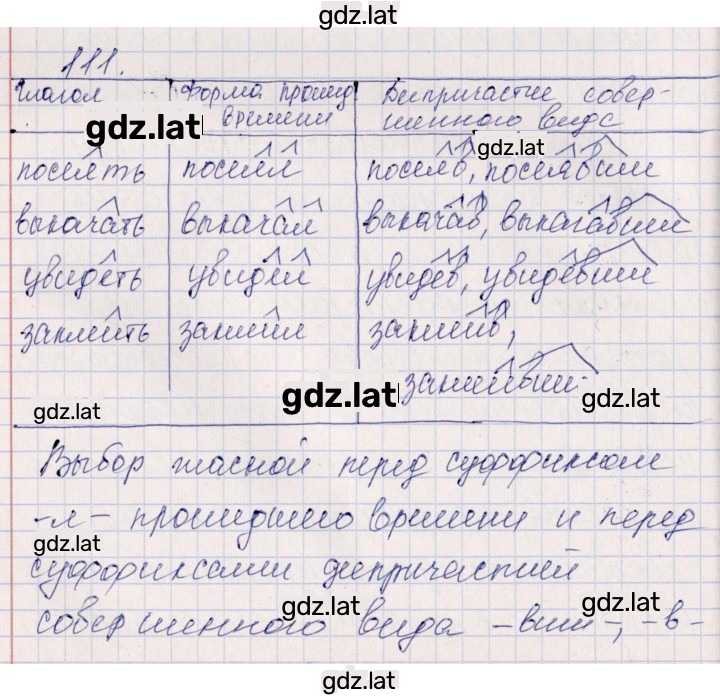 gdz.lat
111.
Глагол Форма прошед. времени Деепричастие совершенного вида
gdz.lat
gdz.lat
посеять посеял посеяв, посеявши
выкачать выкачал выкачав, выкачавши
увидеть увидел увидев, увидевши
заклеить заклеил заклеив,
заклеивши.
gdz.lat
gdz.lat
gdz.lat
Выбор гласной перед суффиксом
-л- прошедшего времени и перед
gdz.lat
суффиксами деепричастий
gdz.lat
gdz.lat
совершенного вида -вши-, -в-
gdz.lat